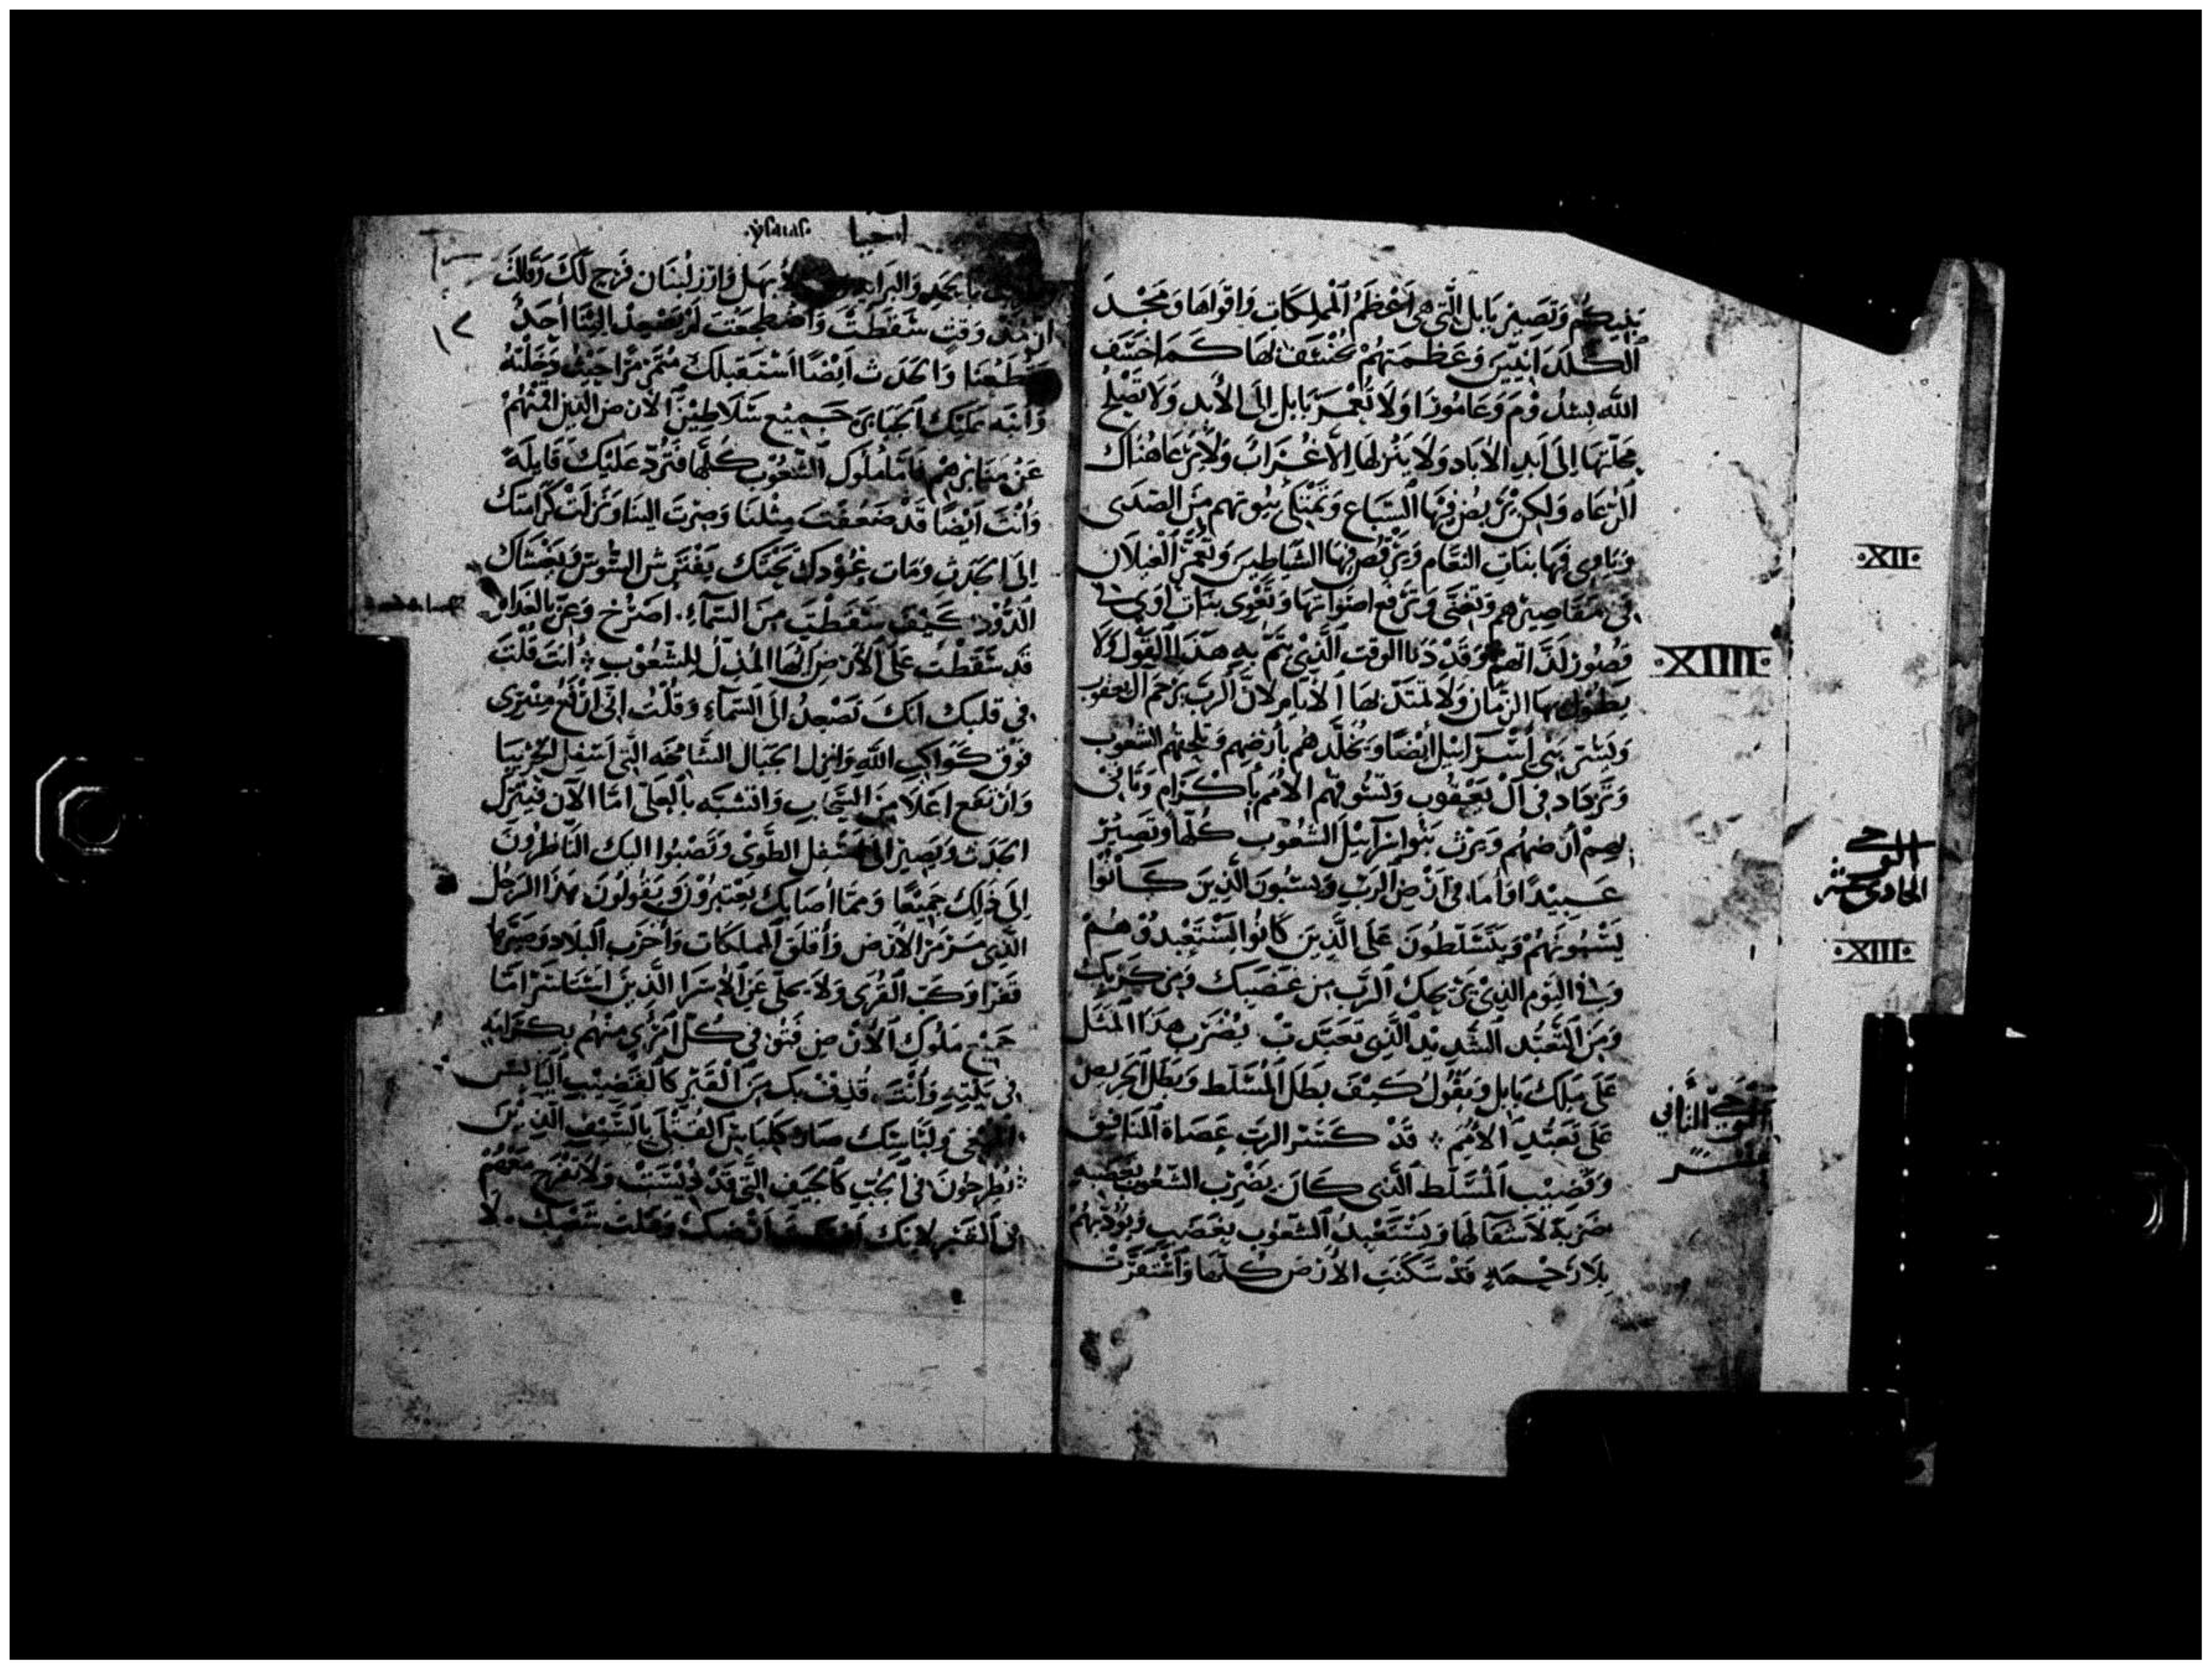 بنيكم وتصير بابل التى هى اعظم المملكات واقواها ومجد
الكلدانيين وعظمتهم يخسف لها كما خسف
الله بسدوم وعامورا ولا تعمر بابل الى الأبد ولا تصلح
محلتها إلى ابد الاباد ولا ينزلها الأعراب ولا يرعا هناك
الرعاه ولكن تربض فيها السباع وتمتلى بيوتهم من الصدى
وتاوى فيها بنات النعام ويرقص فيها الشياطين وتعمر الغيلان
فى مقاصيرهم وتغنى وترفع اصواتها وتعوى بنات اوى فى
قصور لذاتهم وقد دنا الوقت الذى يتم به هذا القول ولا
يطول بها الزمان ولا تمتد لها الأيام لان الرب يرحم ال يعقوب
ويسر بنى اسرائيل ايضا ويخلدهم بأرضهم وتلجيهم الشعوب
وتزداد فى آل يعقوب وتسوقهم الأمم بإكرام وتاتى
بهم أرضهم ويرث بنوا اسرآئيل الشعوب كلها وتصير
عبيدا واما فى ارض الرب ويسبون الذين كانوا
يسبونهم ويتسلطون على الذين كانوا استعبدوهم
وفى اليوم الذى يريحك الرب من غضبك ومن كربك
ومن التعبد الشديد الذى تعبدت يضرب هذا المثل
على ملك بابل ويقول كيف بطل المسلط وبطل الحريص
على تعبد الأمم قد كسر الرب عصاة المنافق
وقضيب المسلط الذى كان يضرب الشعوب بغضبه
ضربة لا شفا لها ويستعبد الشعوب بغضب ويوذيهم
بلا رحمه قد سكنت الأرض كلها واستقرت
·XII·
·XIIII·
الوحى
الحادى عشر
·XIII·
الوحى الثانى
عشر
ysaias
اشعيا
١٢
لأبهل وارز لبنان فرح لك وقالت
وقت سقطت واضطجعت لم يصعد الينا أحد
يقطعنا والجدث ايضا استقبلك متمرمرا حيث دخلته
وانبه عليك الجبابرة جميع سلاطين الأرض الذين اقمتهم
عن منابرهم اما ملوك الشعوب كلها فترد عليك قايلة
وأنت ايضا قد ضعفت مثلنا وصرت الينا ونزلت كرامتك
الى الجدث ومات عودك تحتك يفترش السوس ويغشاك
الدود كيف سقطت من السمآء اصرخ وعز بالغداة
قد سقطت على الأرض ايها المذل للشعوب أنت قلت
فى قلبك انك تصعد الى السمآء وقلت انى ارفع منبرى
فوق كواكب الله وانزل الجبال الشامخه التى اسفل الجربيا
وارتفع اعلا من السحاب واتشبه بالعلى اما الآن فينزل
الجدث ويصير الى اسفل الطوى وتصبوا اليك الناظرون
إلى ذلك جميعا ومما أصابك يعتبرون ويقولون هذا الرجل
الذى مرمر الأرض وأقلق المملكات وأخرب البلاد وصيرها
قفرا وكب القرى ولا يحلى عن الأسرا الذين استاسر اما
جميع ملوك الأرض فبنو فى كل امرى منهم بكرامه
فى بيته وأنت قذف بك من القبر كالقضيب اليابس
ولباسك صار كلباس القتلى بالسيف الذين
يطرحون فى الجب كالجيف التى قد ديست ولا تفرح معهم
فى القبر لانك ارضك وقتلت شعبك لا